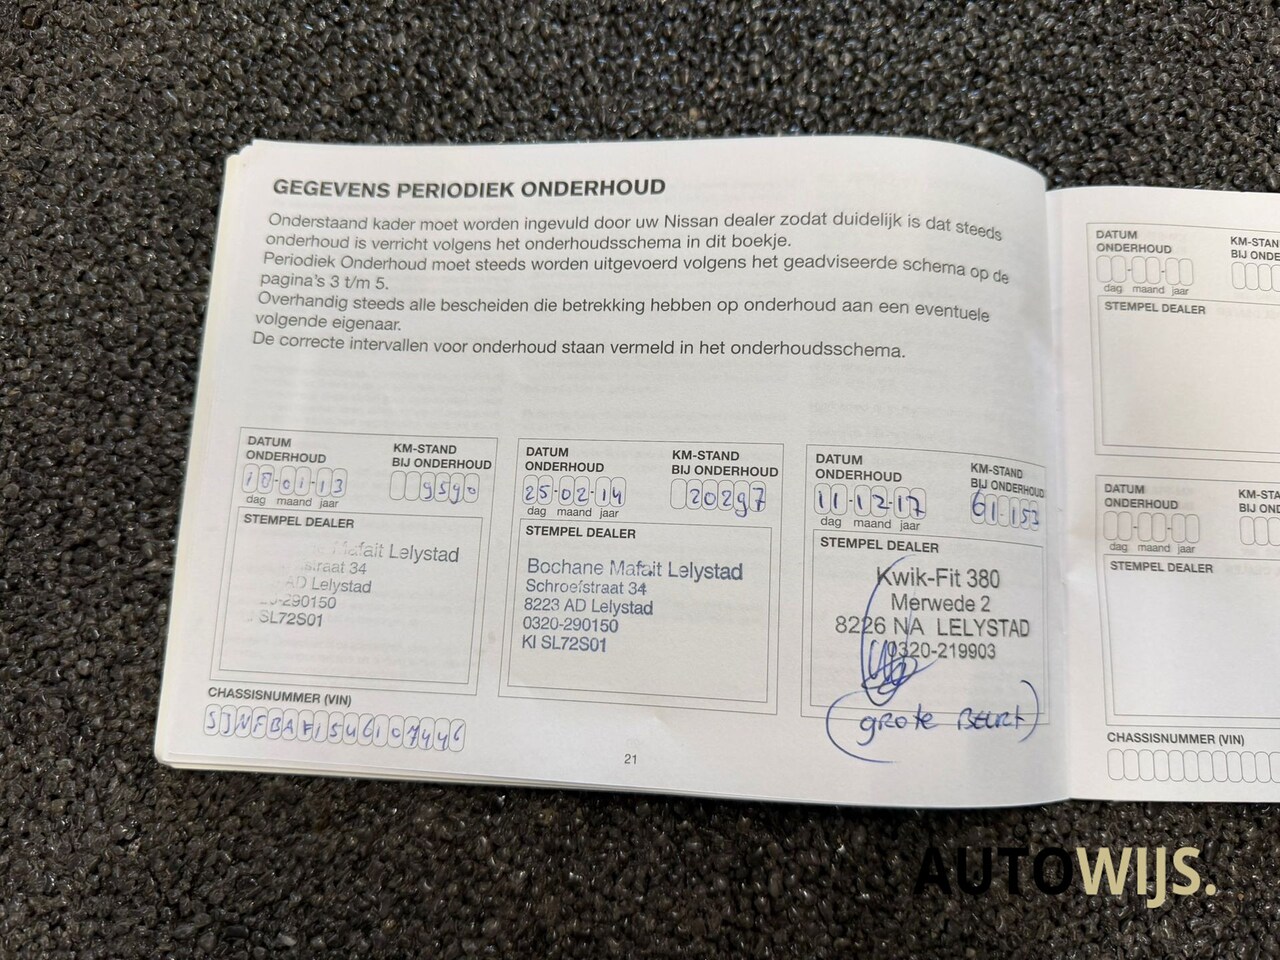 GEGEVENS PERIODIEK ONDERHOUD
Onderstaand kader moet worden ingevuld door uw Nissan dealer zodat duidelijk is dat steeds
onderhoud is verricht volgens het onderhoudsschema in dit boekje.
Periodiek Onderhoud moet steeds worden uitgevoerd volgens het geadviseerde schema op de
pagina's 3 t/m 5.
Overhandig steeds alle bescheiden die betrekking hebben op onderhoud aan een eventuele
volgende eigenaar.
De correcte intervallen voor onderhoud staan vermeld in het onderhoudsschema.
DATUM
ONDERHOUD
KM-STAND
BIJ ONDERHOUD
18-01-13
9590
dag maand jaar
STEMPEL DEALER
Mafait Lelystad
straat 34
AD Lelystad
-290150
SL72S01
CHASSISNUMMER (VIN)
DATUM
ONDERHOUD
KM-STAND
BIJ ONDERHOUD
25-02-14
20297
dag maand jaar
STEMPEL DEALER
Bochane Mafait Lelystad
Schroefstraat 34
8223 AD Lelystad
0320-290150
KI SL72S01
DATUM
ONDERHOUD
KM-STAND
BIJ ONDERHOUD
11-12-17
61153
dag maand jaar
STEMPEL DEALER
Kwik-Fit 380
Merwede 2
8226 NA LELYSTAD
0320-219903
(GROTE BEURT)
21
DATUM
ONDERHOUD
KM-STAN
BIJ ONDE
dag maand jaar
STEMPEL DEALER
DATUM
ONDERHOUD
KM-STA
BIJ OND
dag maand jaar
STEMPEL DEALER
CHASSISNUMMER (VIN)
AUTOWIJS.